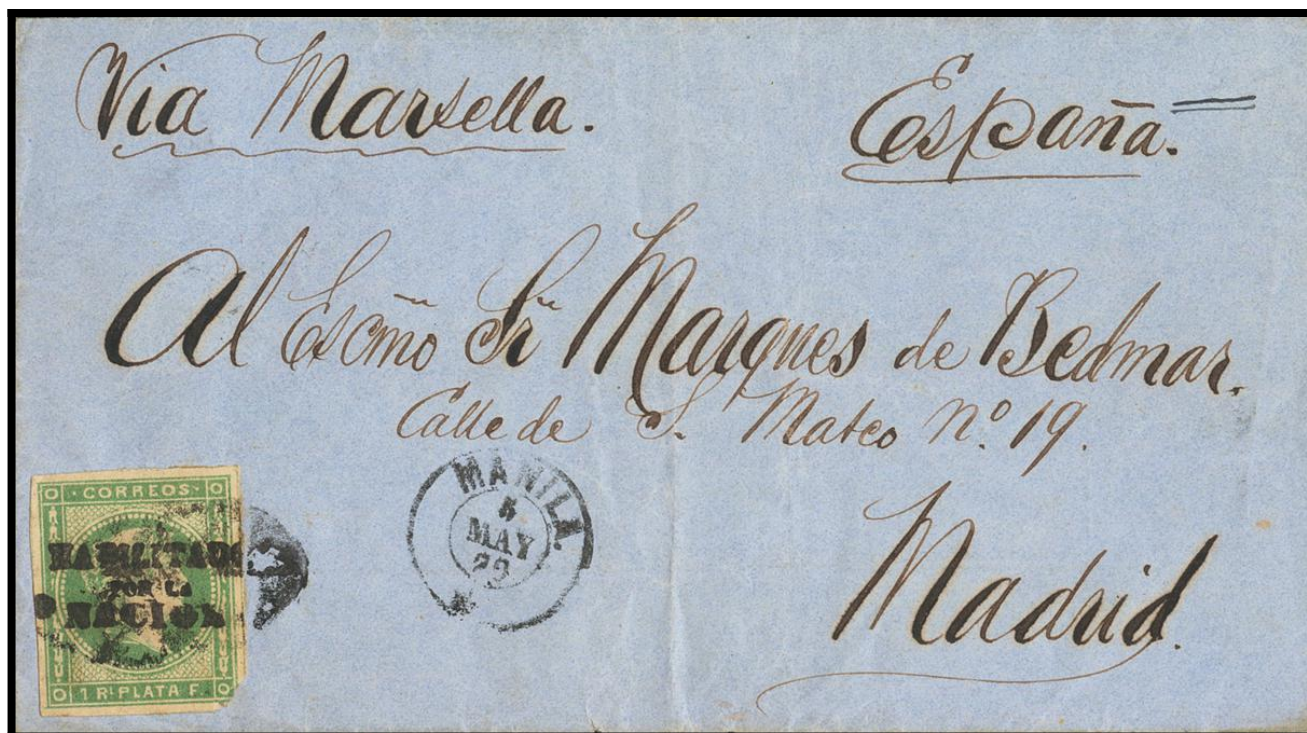 Via Marsella.
España.
Al Escmo Sr Marques de Bedmar.
Calle de S. Mateo Nº 19.
Madrid.
MANILA
5
MAY
CORREOS
HABILITADO
POR LA
NACION
1 RL PLATA F.